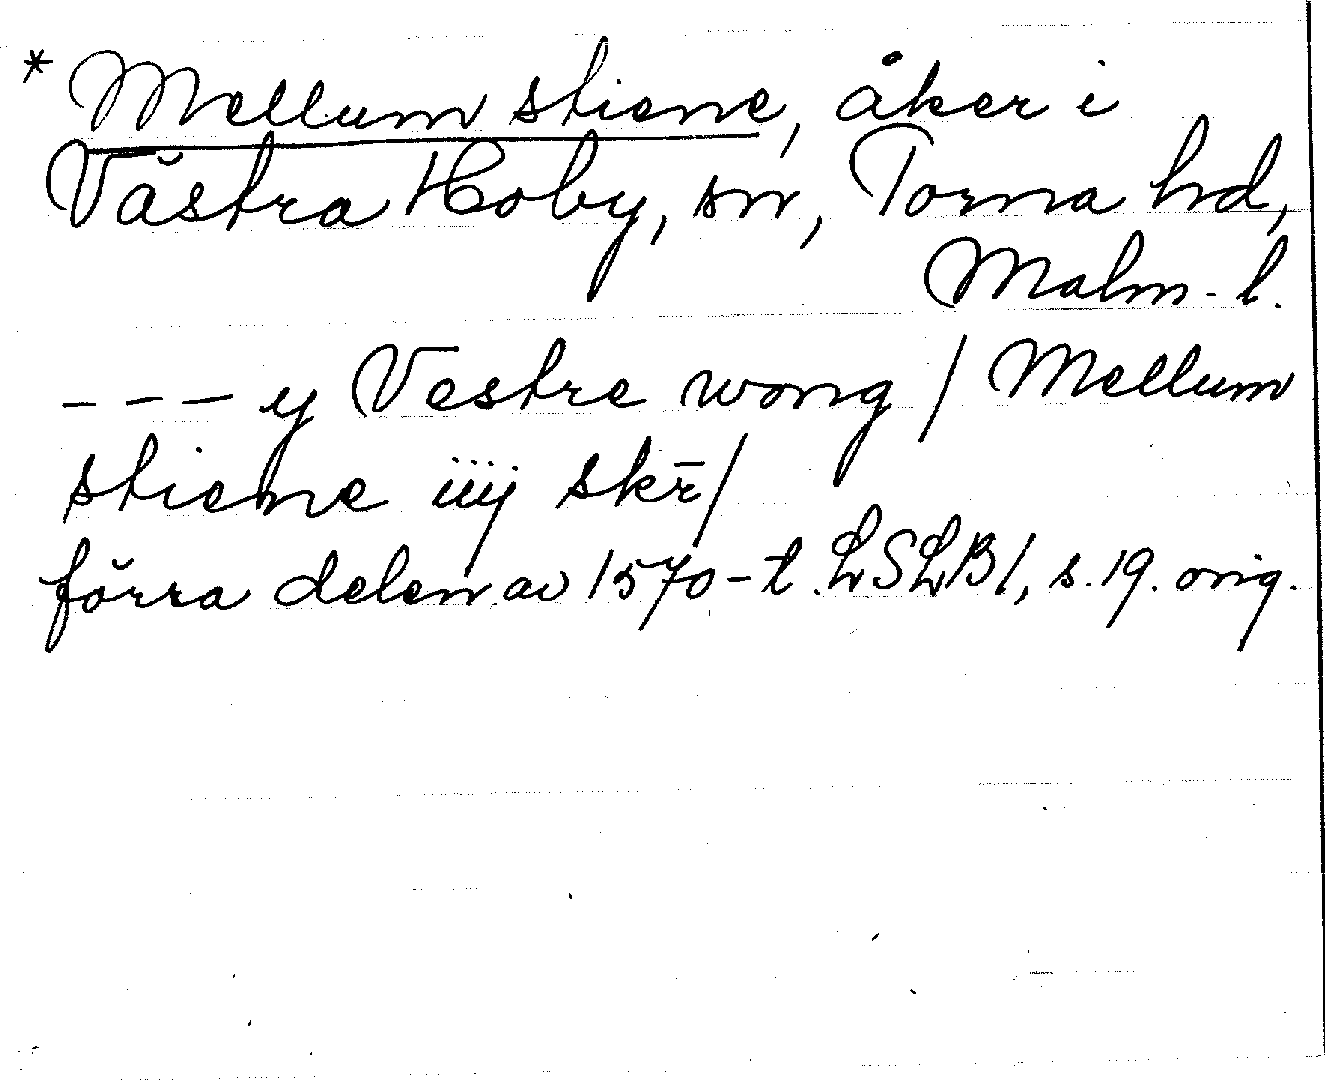 * Mellum stiene, åker i
Västra Hoby, sn, Torna hd,
Malm-l.
--- y Vestre wong / Mellum
stiene iiij skr̄/
förra delen av 1570-t. LSLB1, s. 19. orig.